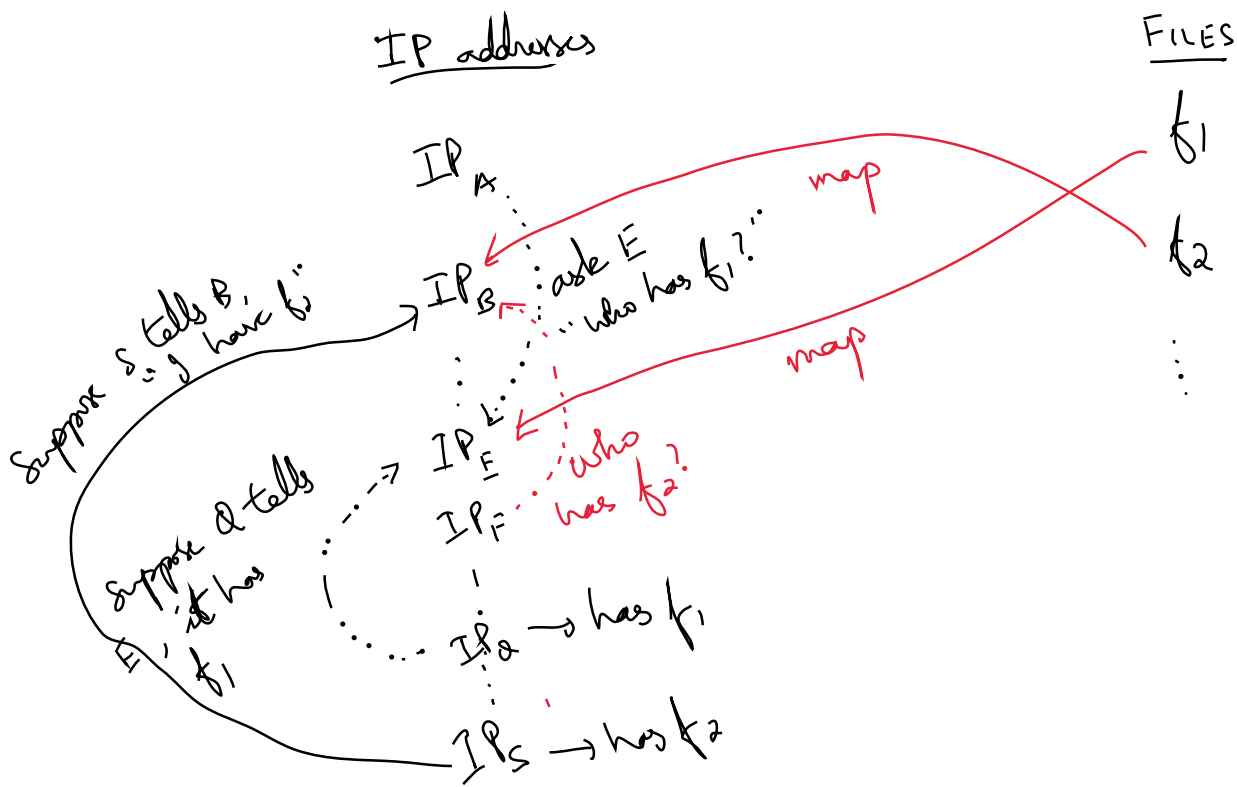 IP addresses
FILES
IP A
f1
map
ask E
"who has f1?"
f2
IP B
Suppose S tells B,
"I have f2"
map
IP E
who
has f2?
IP F
Suppose Q tells
E, it has
f1
IP Q → has f1
IP S → has f2